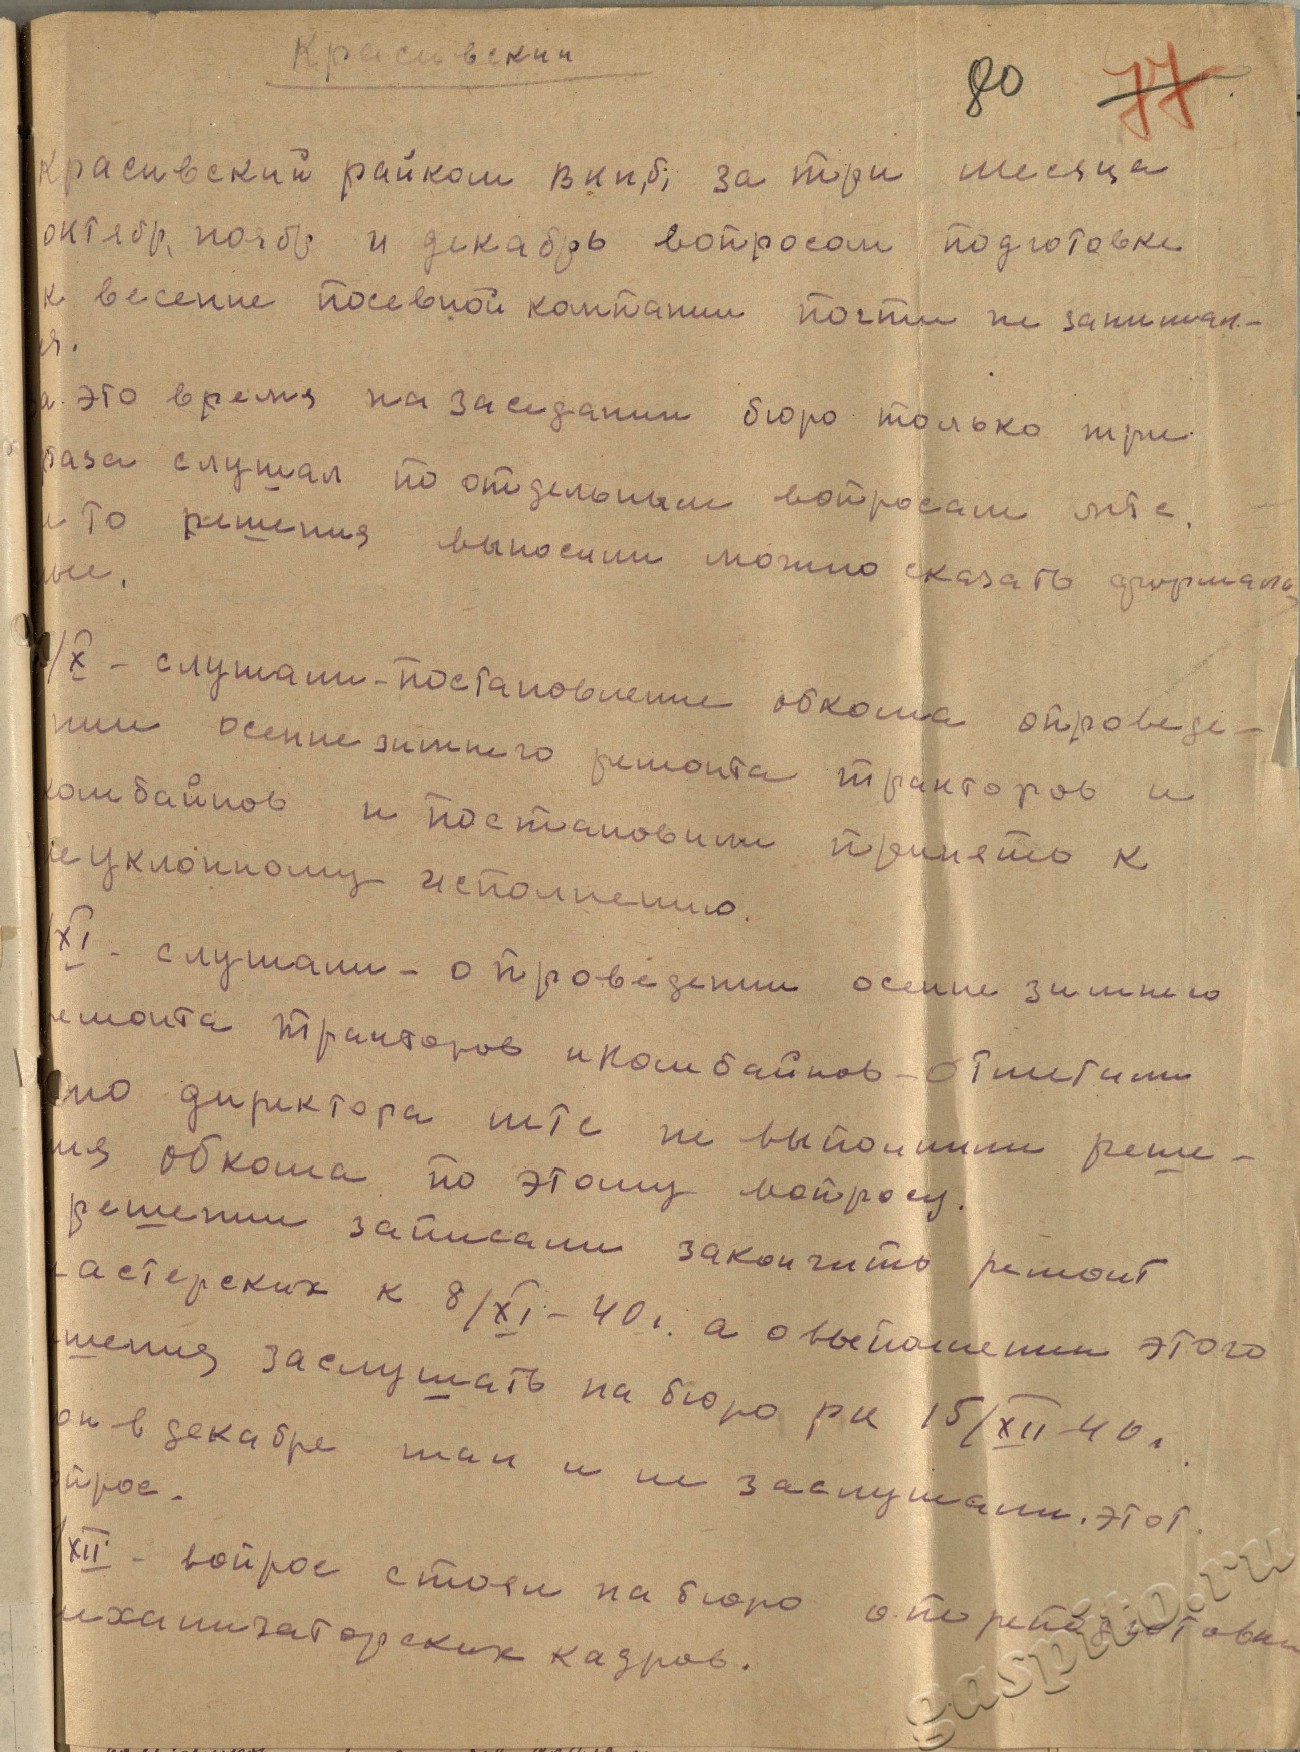 Красивский
80 77
Красивский райком ВКП,б, за три месяца
октябр, ноябр и декабрь вопросом подготовке
к весение посевной компании почти не занимал-
ся.
а это время на заседании бюро только три
раза слушал по отдельным вопросам мтс.
и то решения выносили можно сказать формаль
ые.
/X - слушали - постановление обкома опроведе-
нии осенне зимнего ремонта тракторов и
комбайнов и постановили принять к
неуклонному исполнению.
XI - слушали - о проведении осенне зимнего
ремонта тракторов икомбайнов - отметили
что директора мтс не выполнили реше-
ия обкома по этому вопросу.
решении записали закончить ремонт
астерских к 8/XI - 40 г. а овыполнении этого
шения заслушать на бюро рк 15/XII 40 г.
он в декабре так и не заслушали. этот.
прос.
/XII - вопрос стоял на бюро о переподготовки
еханизаторских кадров.
gaspito.ru